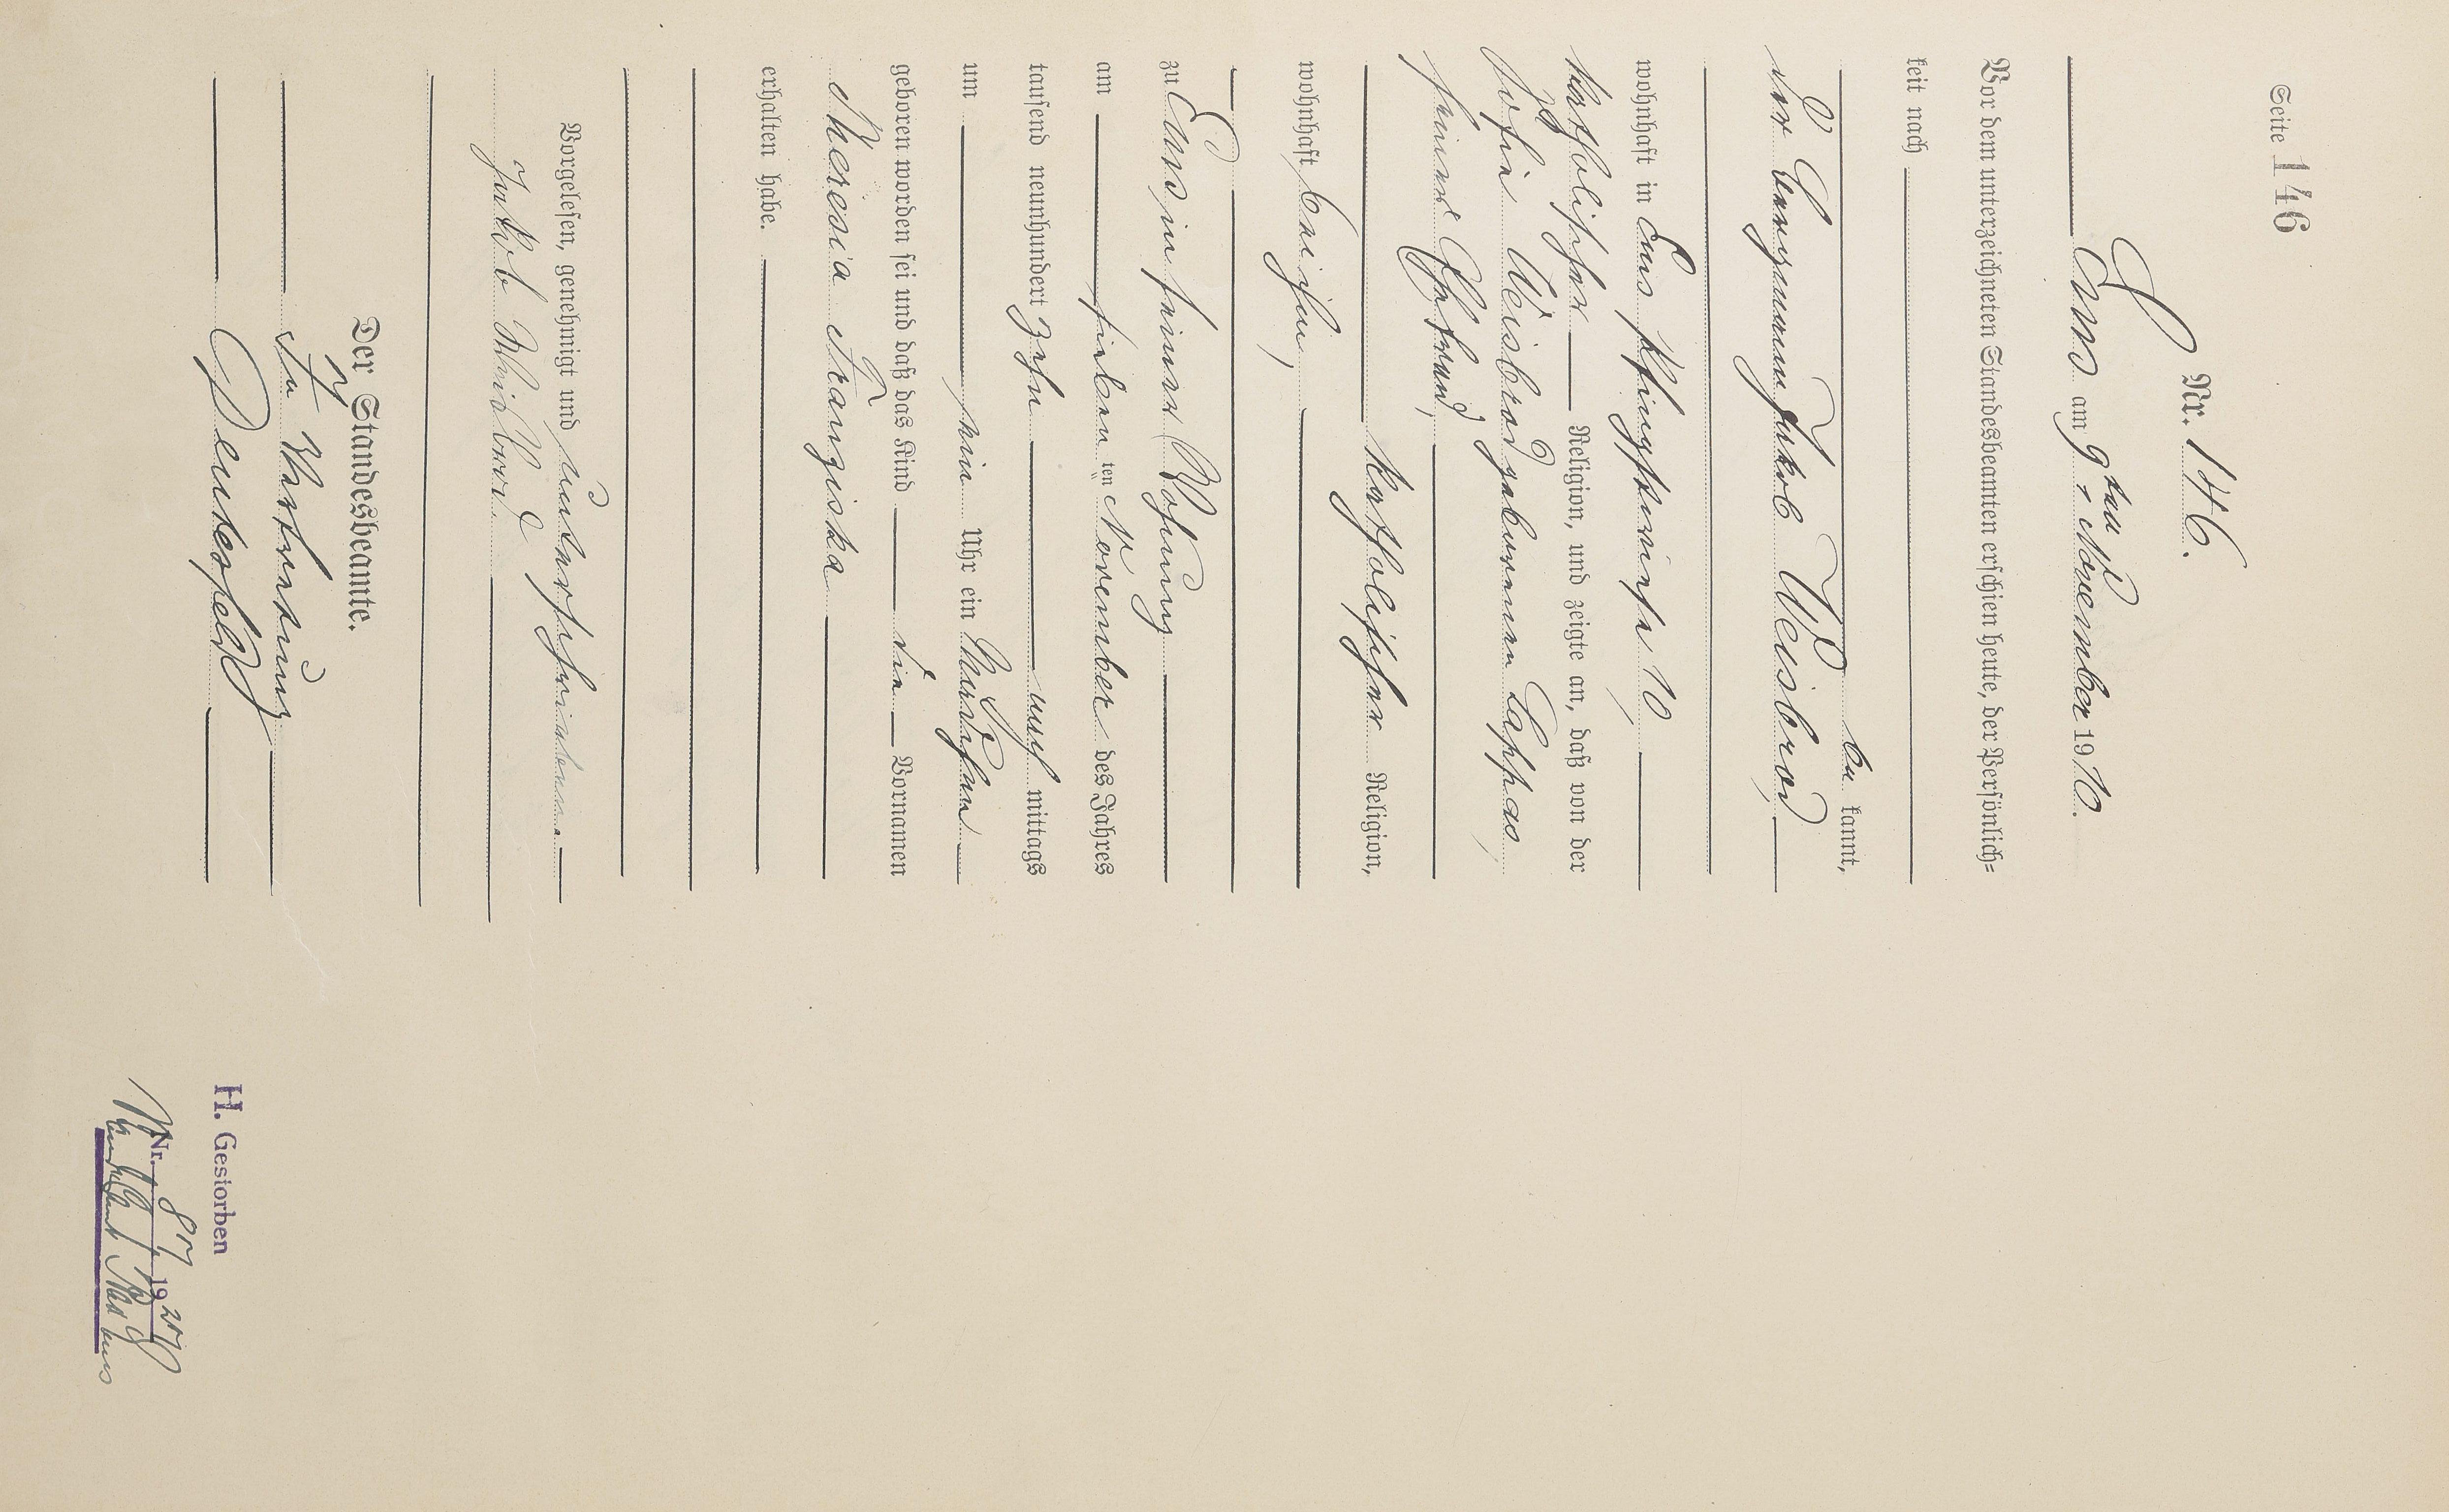 Seite 146
Nr. 146.
Ems am 9ten November 1910.
Vor dem unterzeichneten Standesbeamten erschien heute, der Persönlich=
keit nach
be kannt,
der Bergmann Jakob Weisbrod,
wohnhaft in Ems, Pfingstwiese 10,
katholischer Religion, und zeigte an, daß von der
Weisbrod geborenen Lappas,
seiner Ehefrau,
katholischer Religion,
wohnhaft bei ihm,
zu Ems in seiner Wohnung
am sieben ten November des Jahres
tausend neunhundert zehn nach mittags
um ein Uhr ein Mädchen
geboren worden sei und daß das Kind die Vornamen
Theresia Franziska
erhalten habe.
Vorgelesen, genehmigt und unterschrieben.
Jakob Weisbrod
Der Standesbeamte.
In Vertretung
H. Gestorben
Nr. 19